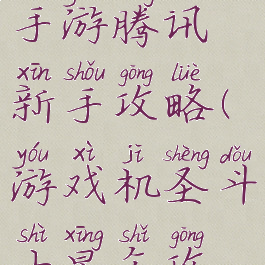 手游腾讯
xīn shǒu gōng lüè
新手攻略(
yóu xì jī shèng dǒu
游戏机圣斗
shì xīng shǐ gōng